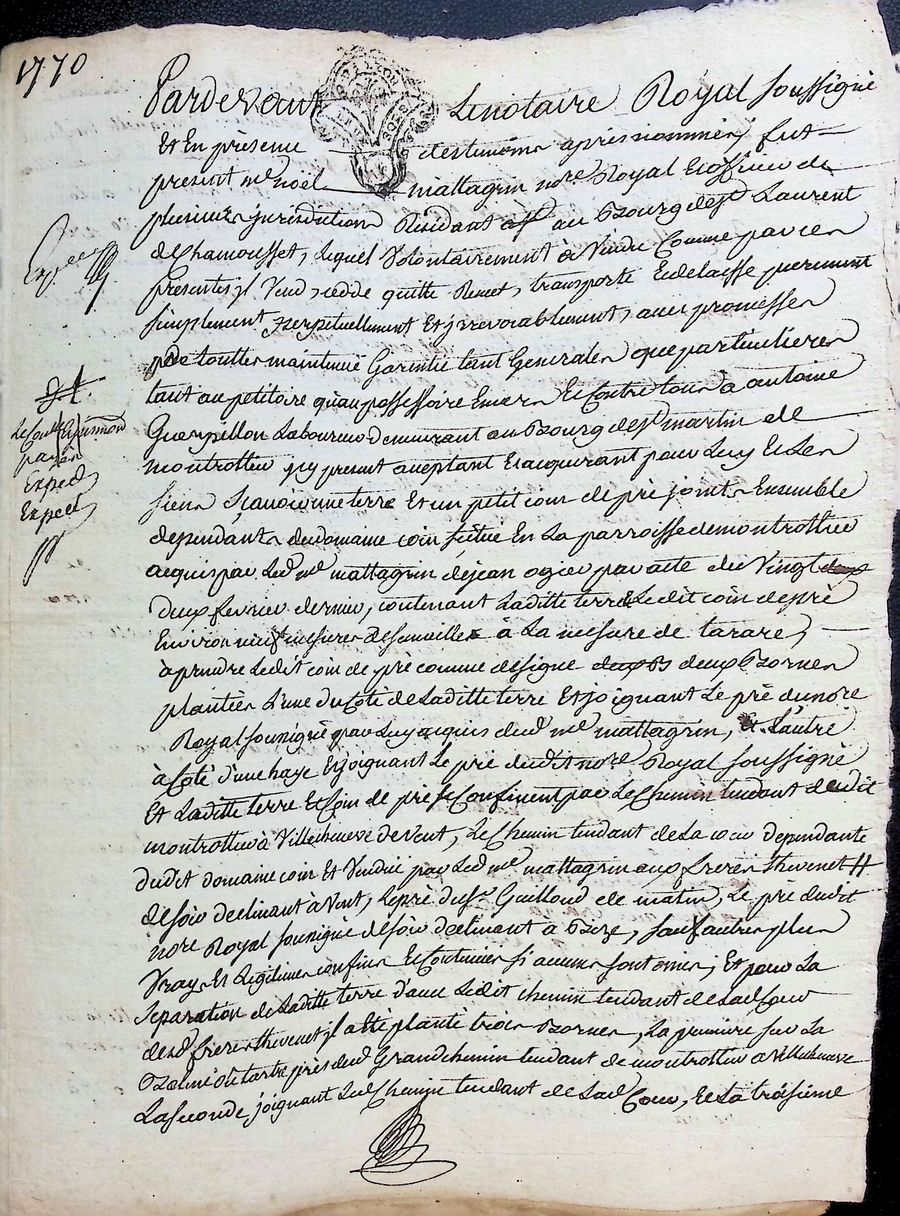 1770
Pardevant Le notaire Royal soussigné
Et En présence des temoins après nommés, fut
present me noel mattagrin nore Royal Et officier de
plusieurs jurisdictions Résidant au Bourg de st Laurent
de Chamousset, Lequel Volontairement à Vendu Comme par ces
Presentes, il Vend, cedde quitte Remet, transporte Et delaisse purement
simplement perpetuellement Et irrevocablement, avec promesses
de touttes maintenüe Garentie tant Generales que particulieres
tant au petitoire qu'au possessoire Envers Et Contre tous à antoine
Guerpillon Laboureur demeurant au Bourg de st martin de
montrottier icy present acceptant Et acquerant pour Luy Et Les
siens Sçavoir une terre Et un petit coin de pré joints Ensemble
dependants du domaine coin scitué En La parroisse de montrottier
acquis par Led me mattagrin de jean ogier par acte du Vingt deux
deux fevrier dernier, contenant Laditte terre Et Le dit coin de pré
Environ neuf mesures de semailles à La mesure de tarare,
à prendre Ledit coin de pré comme dessigne deux Bornes
plantées L'une du Coté de Laditte terre Et joignant Le pré du nore
Royal soussigné par Luy acquis dud me mattagrin, Et L'autre
à Coté d'une haye Et joignant Le pré dudit nore Royal soussigné
Et Laditte terre Et Coin de pré se Confinent par Le Chemin tendant dudit
montrottier à Villecheneve de Vent, Le Chemin tendant de La cour dependante
dudit domaine coin Et Vendüe par Led me mattagrin aux freres thevenet #
de soir declinant à Vent, Le pré du sr Guilloud de matin, Le pré dudit
nore Royal soussigné de soir declinant à Bize, sauf autres plus
Vrays Et Legitimes confins Et Contenües si aucuns sont omis; Et pour La
separation de Laditte terre d'avec Ledit chemin tendant de Lad Cour
desd freres thevenet, il a Eté planté trois Bornes, La premiere sur La
près dud Grand chemin tendant de montrottier a Villecheneve
La seconde joignant Led Chemin tendant de Lad Cour, Et La troisieme
Exped
Exped